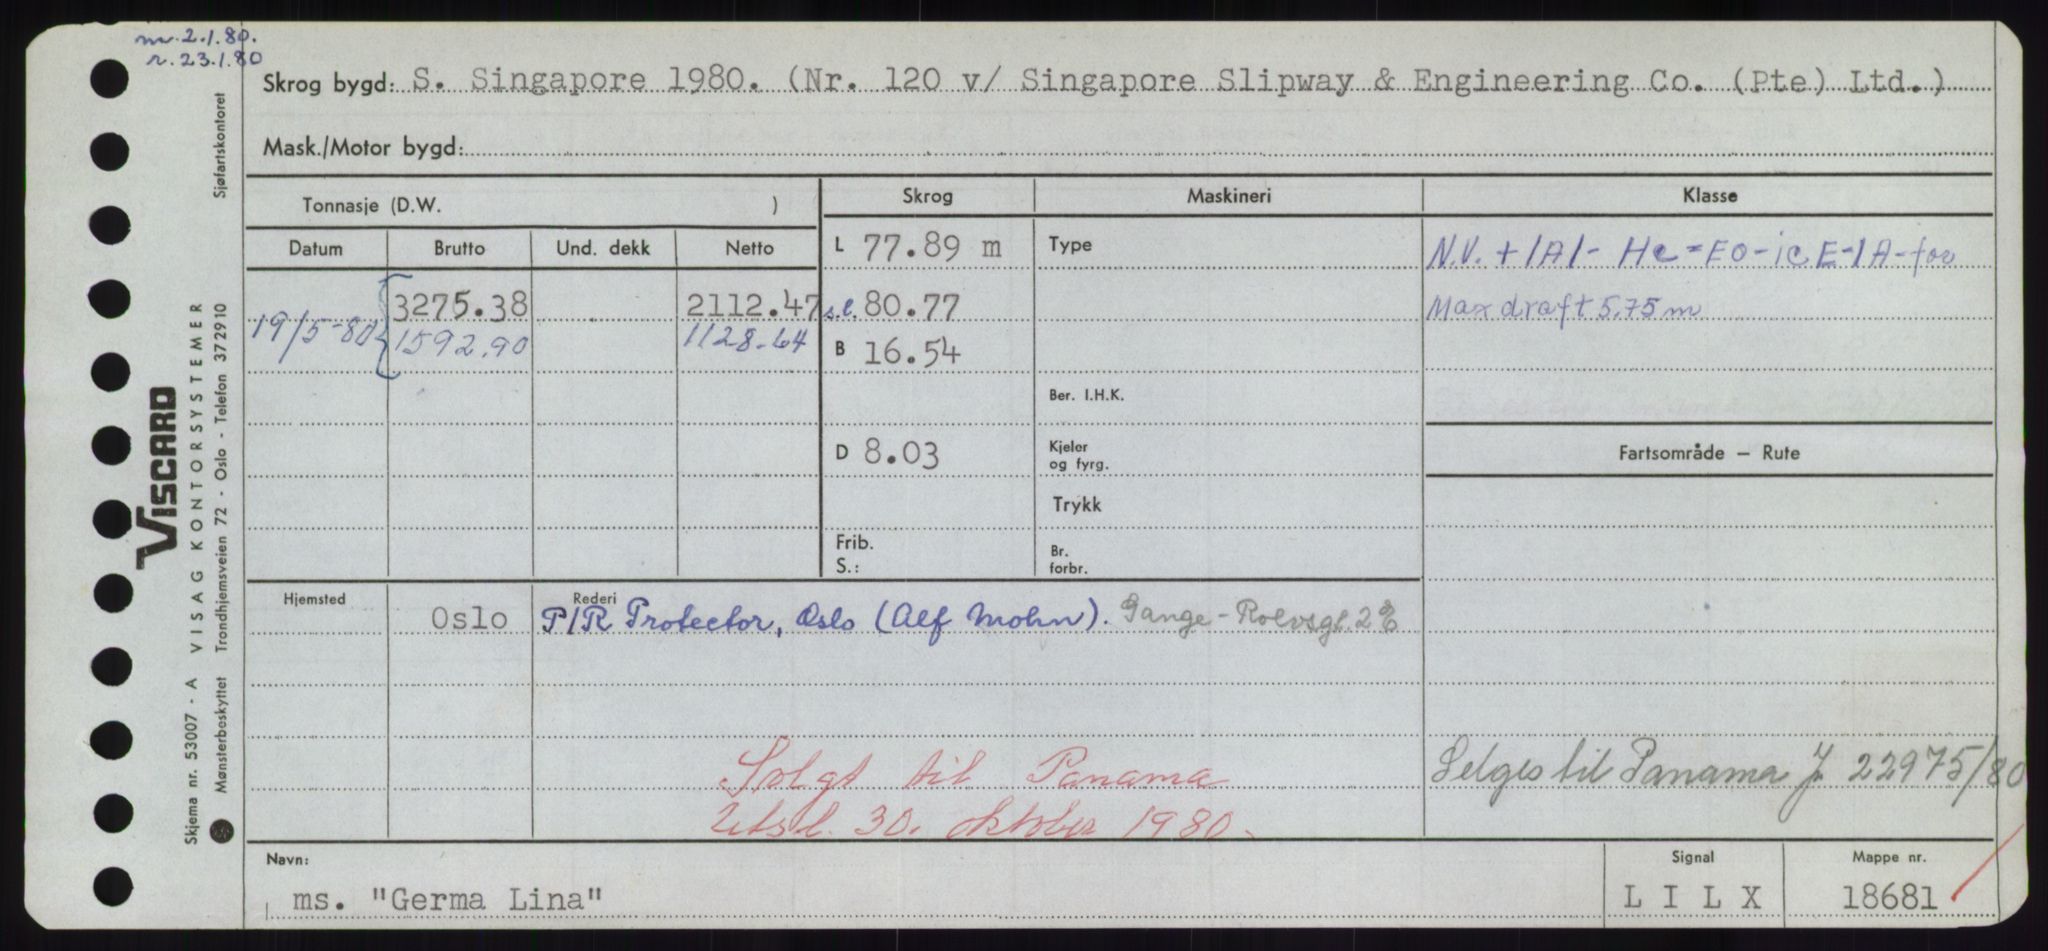 m. 2.1.80.
r. 23.1.80
Skrog bygd: S. Singapore 1980. (Nr. 120 v/ Singapore Slipway & Engineering Co. (Pte) Ltd.)
Mask./Motor bygd:
Tonnasje (D.W. )
Skrog
Maskineri
Klasse
Datum
Brutto
Und. dekk
Netto
L 77.89 m
Type
N.V. + 1A1 - Hc = EO - icE-1A - for
19/5-80
3275.38
2112.47
s.l. 80.77
Max draft 5,75 m
1592.90
1128.64
B 16.54
Ber. I.H.K.
D 8.03
Kjeler
og fyrg.
Fartsområde — Rute
Trykk
Frib.
S.:
Br.
forbr.
Hjemsted
Rederi
Oslo
P/R Protector, Oslo (Alf Mohn). Gange-Rolvsgt. 2
Solgt til Panama
Selges til Panama J 22975/80
Utsl. 30. oktober 1980.
Navn:
ms. "Germa Lina"
Signal
L I L X
Mappe nr.
18681
VISCARD
Skjema nr. 53007 - A VISAG KONTORSYSTEMER
Mønsterbeskyttet Trondhjemsveien 72 - Oslo - Telefon 372910 Sjøfartskontoret